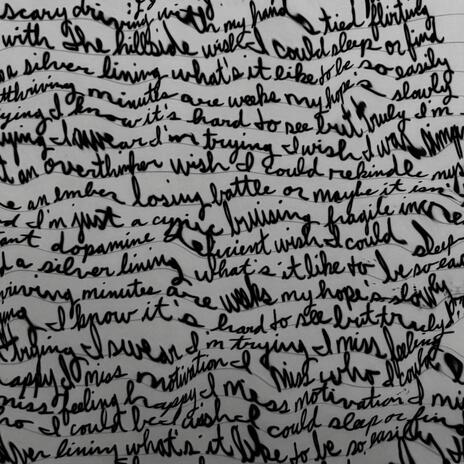 scary driving with my hand tied flirting
with the hillside wish I could sleep or find
a silver lining what's it like to be so easily
thriving minutes are weeks my hope's slowly
dying I know it's hard to see but truly I'm
trying I swear I'm trying I wish I was
an overthinker wish I could rekindle
an ember losing battle or maybe it
I'm just a bruising fragile
dopamine deficient wish I could sleep
a silver lining what's it like to be so
thriving minutes are weeks my hope's slowly
I know it's hard to see but truly
trying I swear I'm trying I miss feeling
happy I miss motivation I miss who I could
miss feeling happy I miss motivation I
who I could be wish I could sleep or find
silver lining what's it like to be so easily